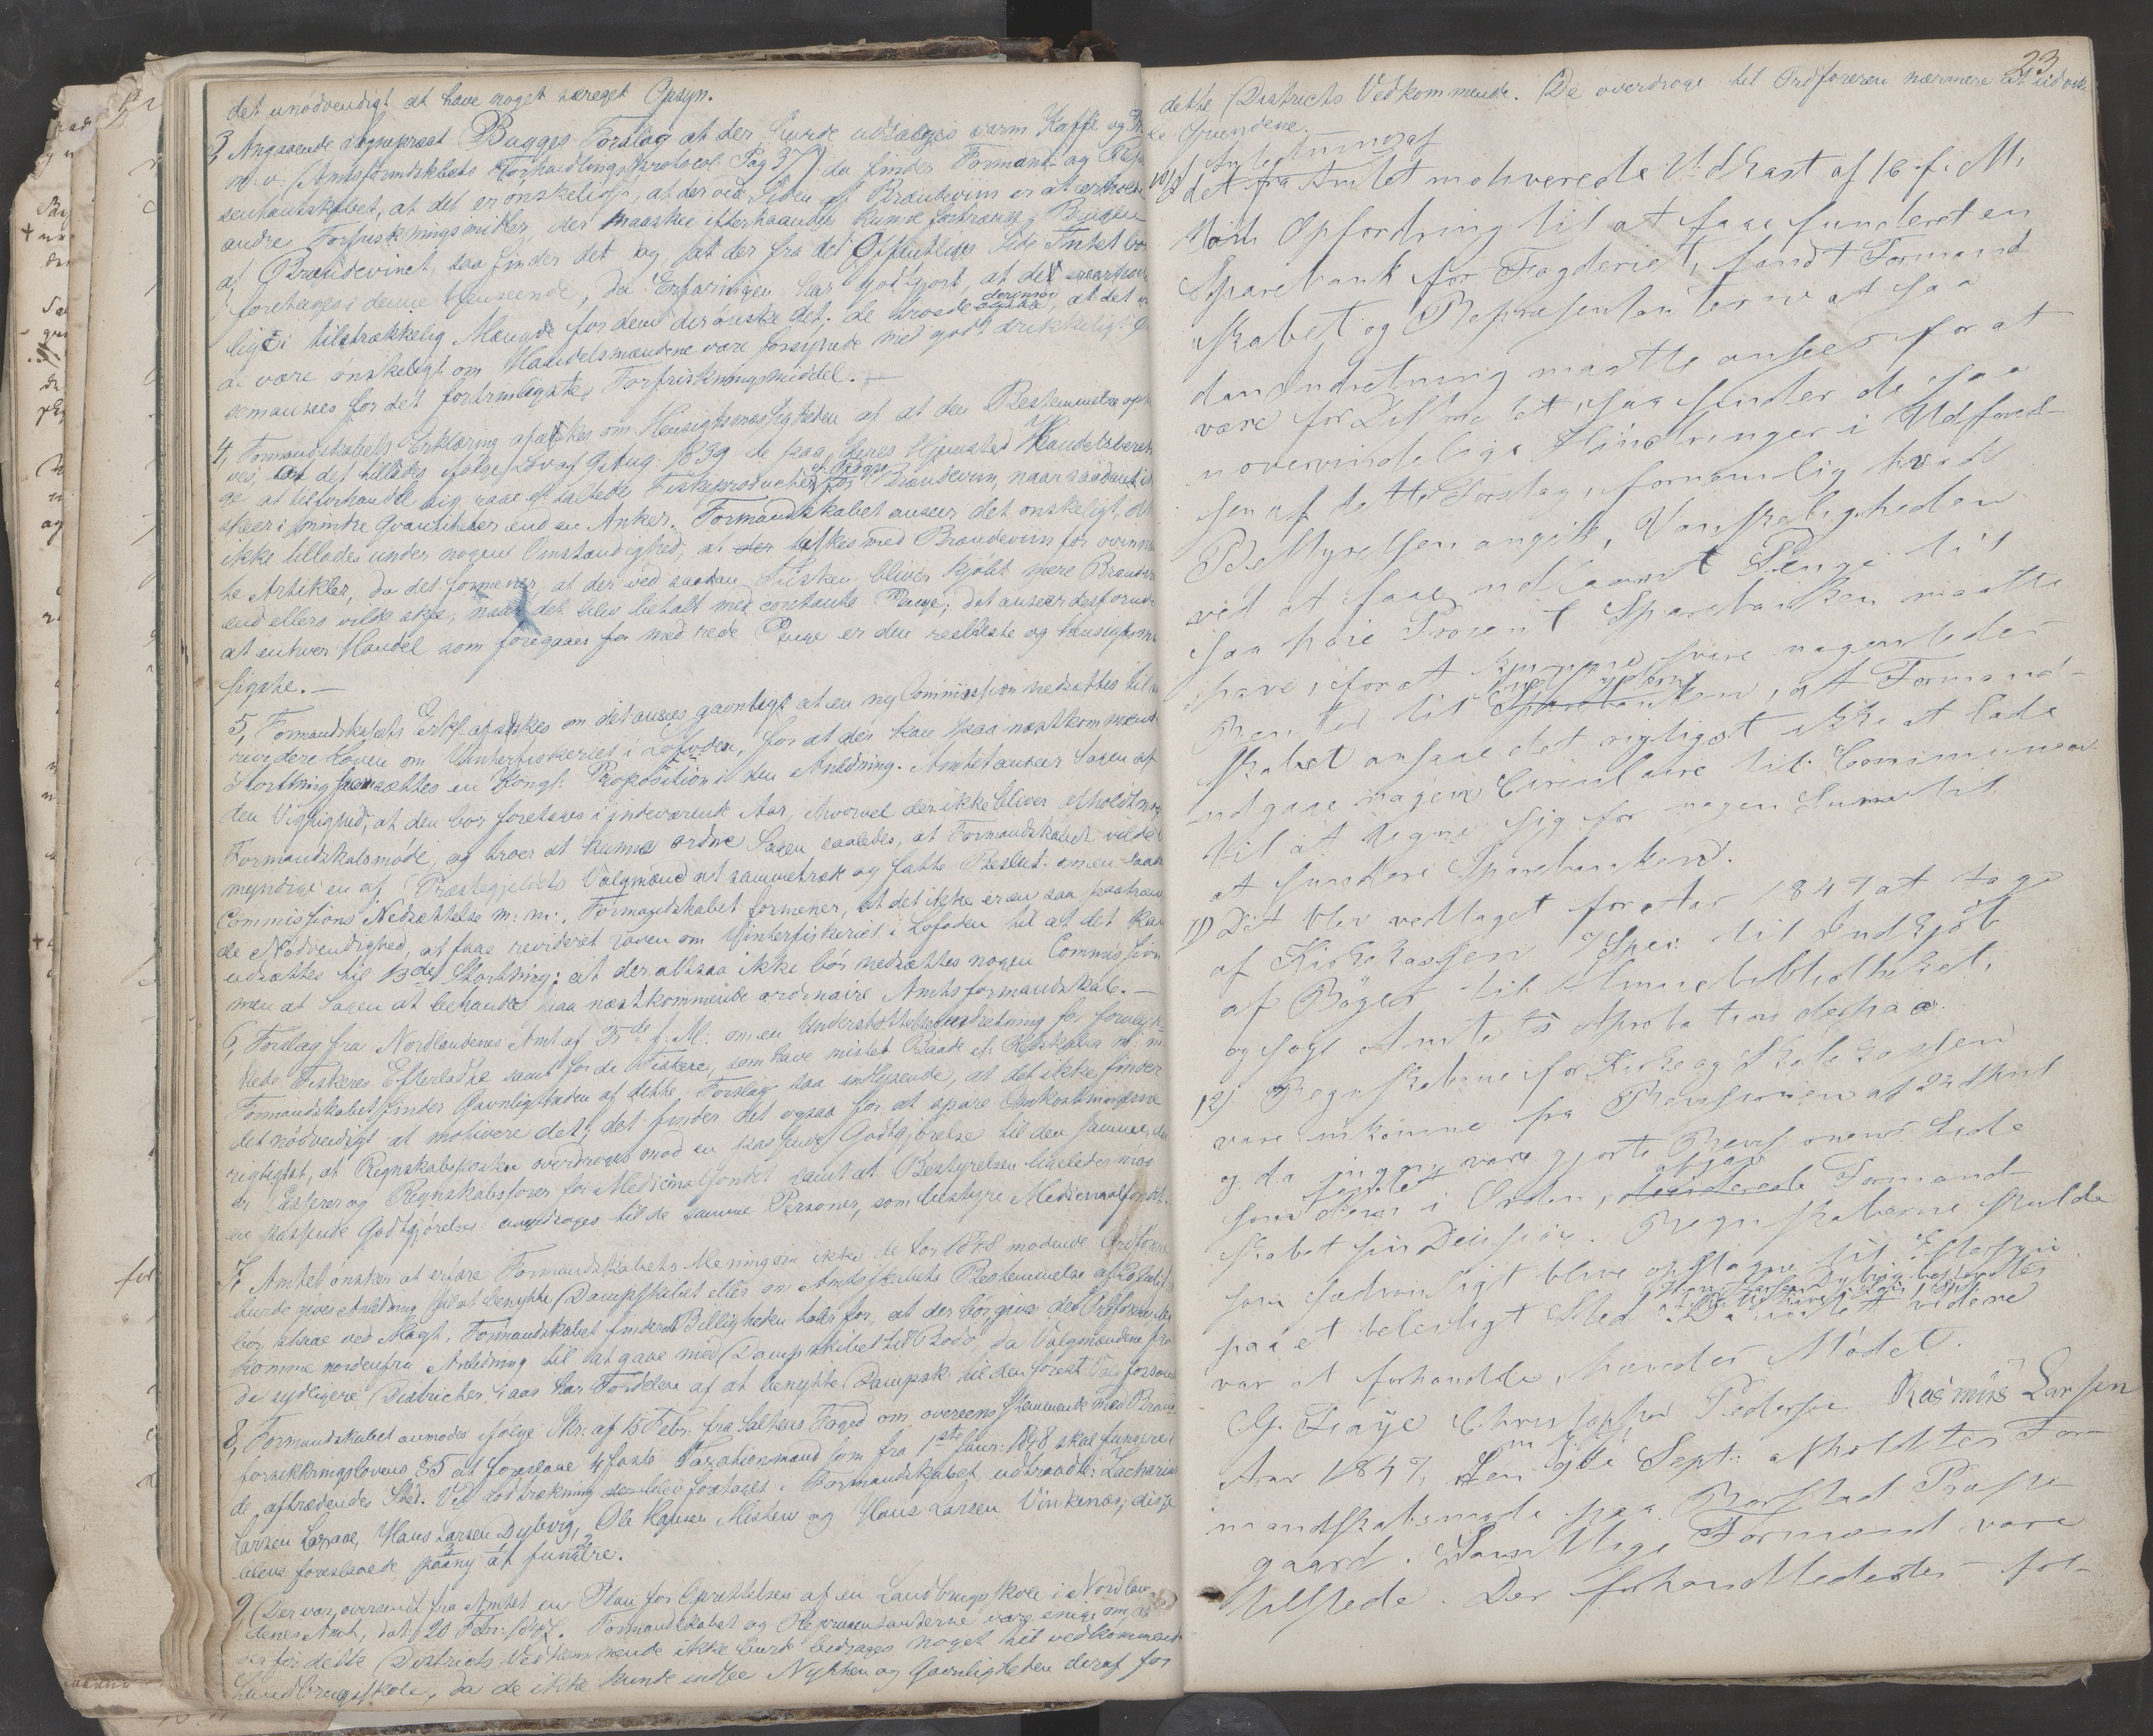 det unödvendigt at have noget særeget Opsyn.
3, Angaaende Sogneprest Bugges Forslag at der burde udsælges varm Kaffe og
m. v. (Amtsformdskbets Forhandlingsprotocol Pag 37) da finder Formand- og Repræ
sentantskabet, at det er ønskeligt, at der ved Siden af Brændeviin er at erholde
andre Forfriskningsmidler, der maaskee efterhaanden kunde fortrænge Brugen
af Brændevinet, saa finder det dog, at der fra det Offentliges Side Intet bör
foretages i denne Henseende, da Erfaringen har godtgjort, at det
lige i tilstrækkelig Mængde for dem der önske det; de troede derimod, at det
at være önskeligt om Handelsmændene vare forsynede med godt drikkeligt Öl
som ansees for det fortrinligste Forfriskningsmiddel. —
4, Formandskabets Erklæring afæskes om Hensigtsmæssigheden af at den Bestemmelse op
ves, at det tillades ifölge Lov af 9 Aug. 1839 de paa deres Hjemsted Handelsberet
ge at tilforhandle sig raae el. saltede Fiskeproducter for Brændeviin, naar saadant
skeer i mindre Qvantiteter end en Anker. Formandskabet anseer det önskeligt, at det
ikke tillades under nogen Omstændighed, at der tuskes med Brændeviin for ovennævn
te Artikler, da det formener, at der ved saadan Tusken bliver kjöbt mere Brændev
end ellers vilde skje, naar det blev betalt med contante Penge; det anseer desforuden
at enhver Handel som foregaaer for med rede Penge er den reelleste og hensigtsmæs
sigste. —
5, Formandskabets Erkl. afæskes om det ansees gavnligt at en ny Commission nedsættes til at
revidere Loven om Vinterfiskeriet i Lofoden, for at der kan paa næstkommende
Storthing fremsættes en Kongl. Proposition i den Anledning. Amtet anseer Sagen af
den Vigtighed, at den bör foretages i indeværende Aar, ihvorvel der ikke bliver afholdt noget
Formandskabsmöde, og troer at kunne ordne Sagen saaledes, at Formandskabet vilde be
myndige en af Præstegjeldets Valgmænd at sammetræde og fatte Beslut. om en saadan
Commissions Nedsættelse m: m:. Formandskabet formener, at det ikke er en saa paatræng
de Nödvendighed, at faae revideret Loven om Vinterfiskeriet i Lofoden til at det kan
udsættes til 13de Storthing; at der altsaa ikke bör nedsættes nogen Commission
men at Sagen at behandle paa næstkommende ordinaire Amtsformandskab. —
6, Forslag fra Nordlandenes Amt af 5te f. M. om en Understöttelsesindretning for forulyk-
kede Fiskeres Efterladte samt for de Fiskere, som have mistet Baade el. Redskaber m: m
Formandskabet finder Gavnligheden af dette Forslag saa indlysende, at det ikke finder
det nödvendigt at motivere det; det finder det ogsaa for at spare Omkostningerne
rigtigst, at Regnskabsposten overdrages mod en passende Godtgjörelse til den samme, der
er Casserer og Regnskabsförer for Medicinalfondet samt at Bestyrelsen ligeledes mod
en passende Godtgjörelse overdrages til de samme Personer, som bestyre Medicinalfondet.
7, Amtet önsker at erfare Formandskabets Mening om ikke de for 1848 mödende Ordförere
burde gives Anledning til at benytte Dampskibet eller om Amtsskabets Bestemmelse af
bör staae ved Magt. Formandskabet finder at Billigheden taler for, at der bör gives de Ordförere, der
komme nordenfra Anledning til at gaae med Dampskibet til Bodö, da Valgmændene fra
de sydligere Districter i aar har Fordelen af at benytte Dampsk. til den forest. Valgforsaml
8, Formandskabet anmodes ifölge Skr. af 15 Febr. fra Saltens Foged om overeensstemmende med Brand
forsikkringslovens §5 at foreslaae 4 faste Taxationsmænd som fra 1ste Janr. 1848 skal fungere i
de aftrædendes Sted. Ved Lodtrækning der blev foretaget i Formandskabet, udtraadte: Zacharias
Larsen Löraae, Hans Larsen Dyborg, Ole Hansen Misten og Hans Larsen Vinkenæs; disse
bleve foreslaaede paany at fungere.
9, Der var oversendt fra Amtet en Plan for Oprettelsen af en Landbrugsskole i Nordlan-
denes Amt, dat: 20 Febr. 1847. Formandskabet og Repræsentanterne vare enige om, at
der for dette Districts Vedkommende ikke burde bidrages noget til vedkommende
Landbrugsskole, da de ikke kunde indsee Nytten og Gavnligheden deraf for
23
dette Districts Vedkommende. De overdroge til Ordföreren nærmere at udvik
le Grundene.
10) I Anledning af
det fra Amtet motiverede Udkast af 16 f. M.
med Opfordring til at faae funderet en
Sparebank for Fogderiet, fandt Formand
skabet og Repræsentanterne at saa
dan Indretning maatte ansees for at
være for Districtet, saa finder de saa
uovervindelige Hindringer i Udförel-
sen af dette Forslag, fornemlig hvad
Bestyrelsen angik, Vanskeligheden
ved at faae udlaant Penge til
saa höie Procent Sparebanken maatte
have, for at kunne svare nogenledes
Renter til Indskyderne, at Formand-
skabet ansaae det rigtigst ikke at lade
udgaae nogen Circulaire til Communen
til at tegne sig for nogen Summa til
at fundere Sparebanken.
11) Det blev vedtaget for Aar 1847 at tage
af Kirkekassen 7 Spec. til Indkjöb
af Böger til Almuebibliotheket,
og söge Amtets Aprobation derpaa.
12) Regnskaberne for Kirke og Skolekassen
vare inkomne fra Revisionen af 22 April
og da ingen vare gjorte Revisionens Side
fandtes i Orden, afgav Formand
skabet sin Decision. Regnskaberne skulde
som sædvanligt blive opslagne til Eftersyn
paa et beleiligt Sted. Da intet videre
var at forhandle, hævedes Mödet.
G. Traye Christopher Pedersen Rasmus Larsen
Aar 1847, den 9de Sept: afholdtes For-
mandskabsmöde paa Rorstad Præste
gaard. Samtlige Formænd vare
tilstede. Der forhandledes föl-